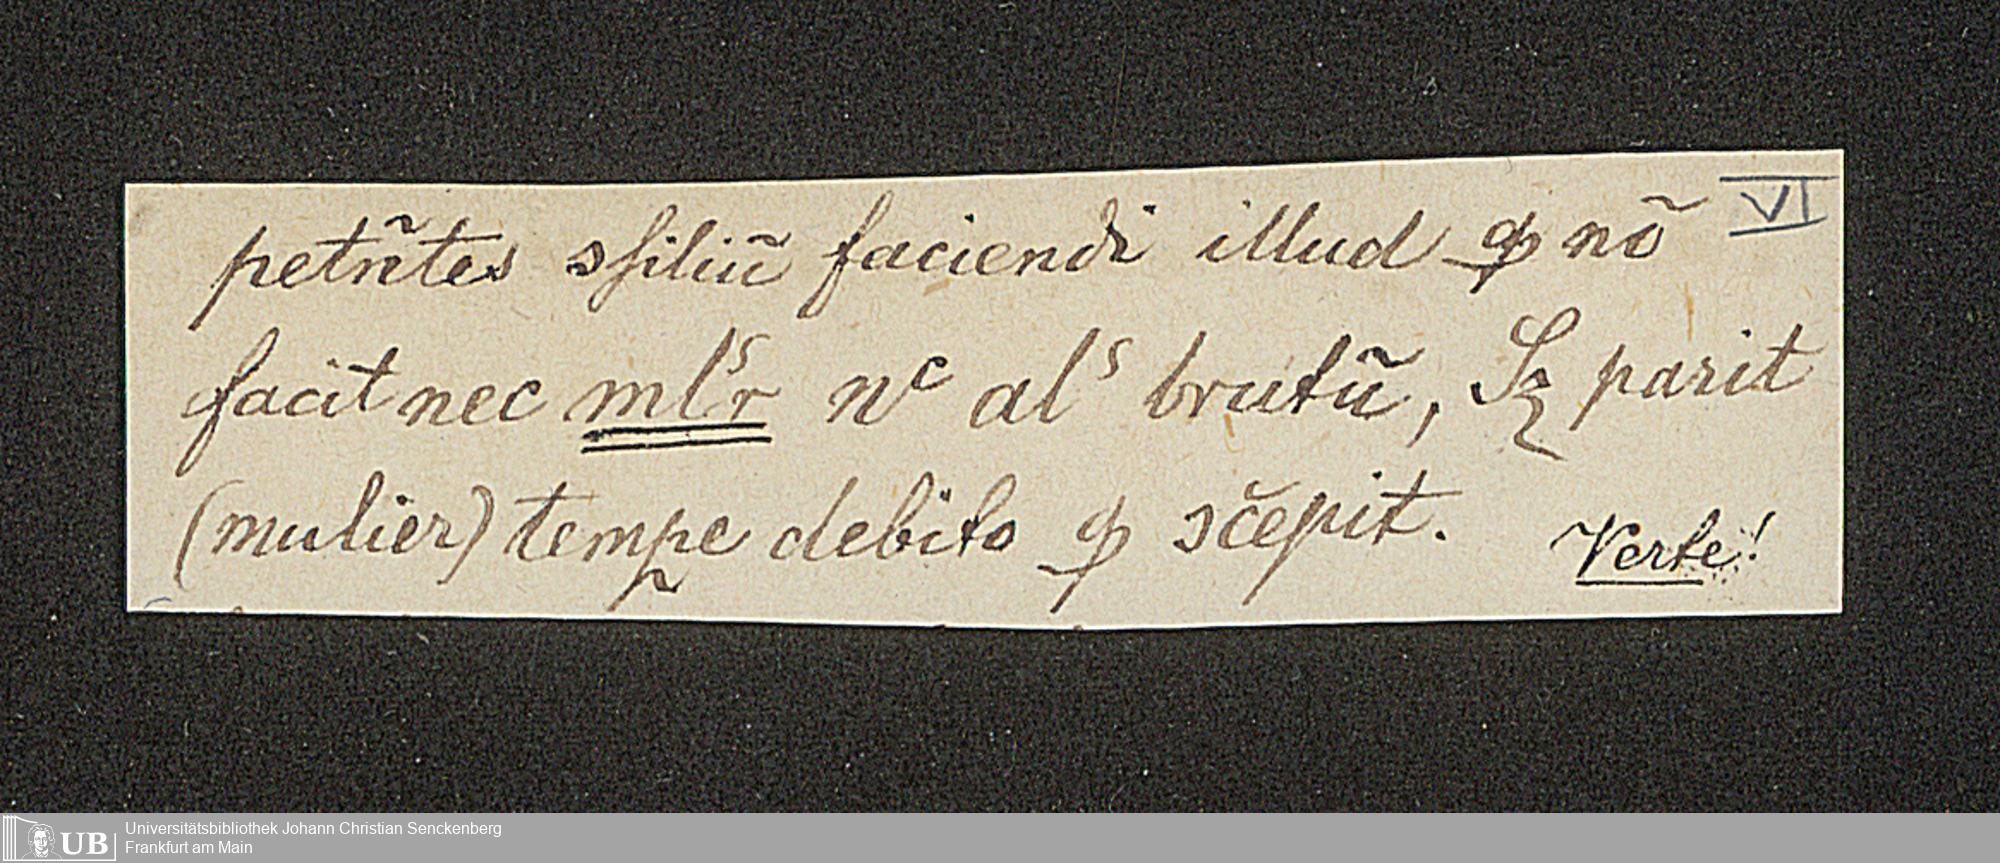 petñtes ɔſiliũ faciendi illud ꝙ nõ
VI
facit nec mlˢr nᶜ alˢ brutũ, Sꝫ parit
(mulier) tempe debito ꝙ ɔc̃epit.
Verte!
UB
Universitätsbibliothek Johann Christian Senckenberg
Frankfurt am Main